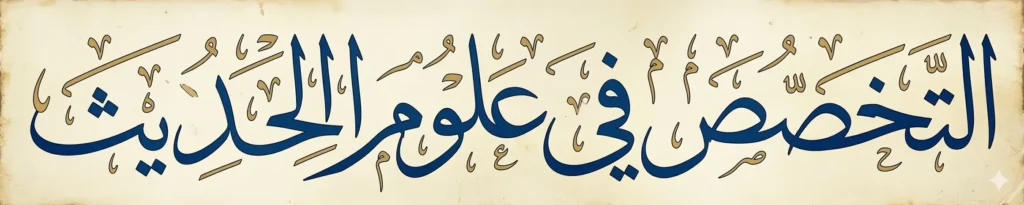 التَّخَصُّص في عَلُوم االحَدِيث